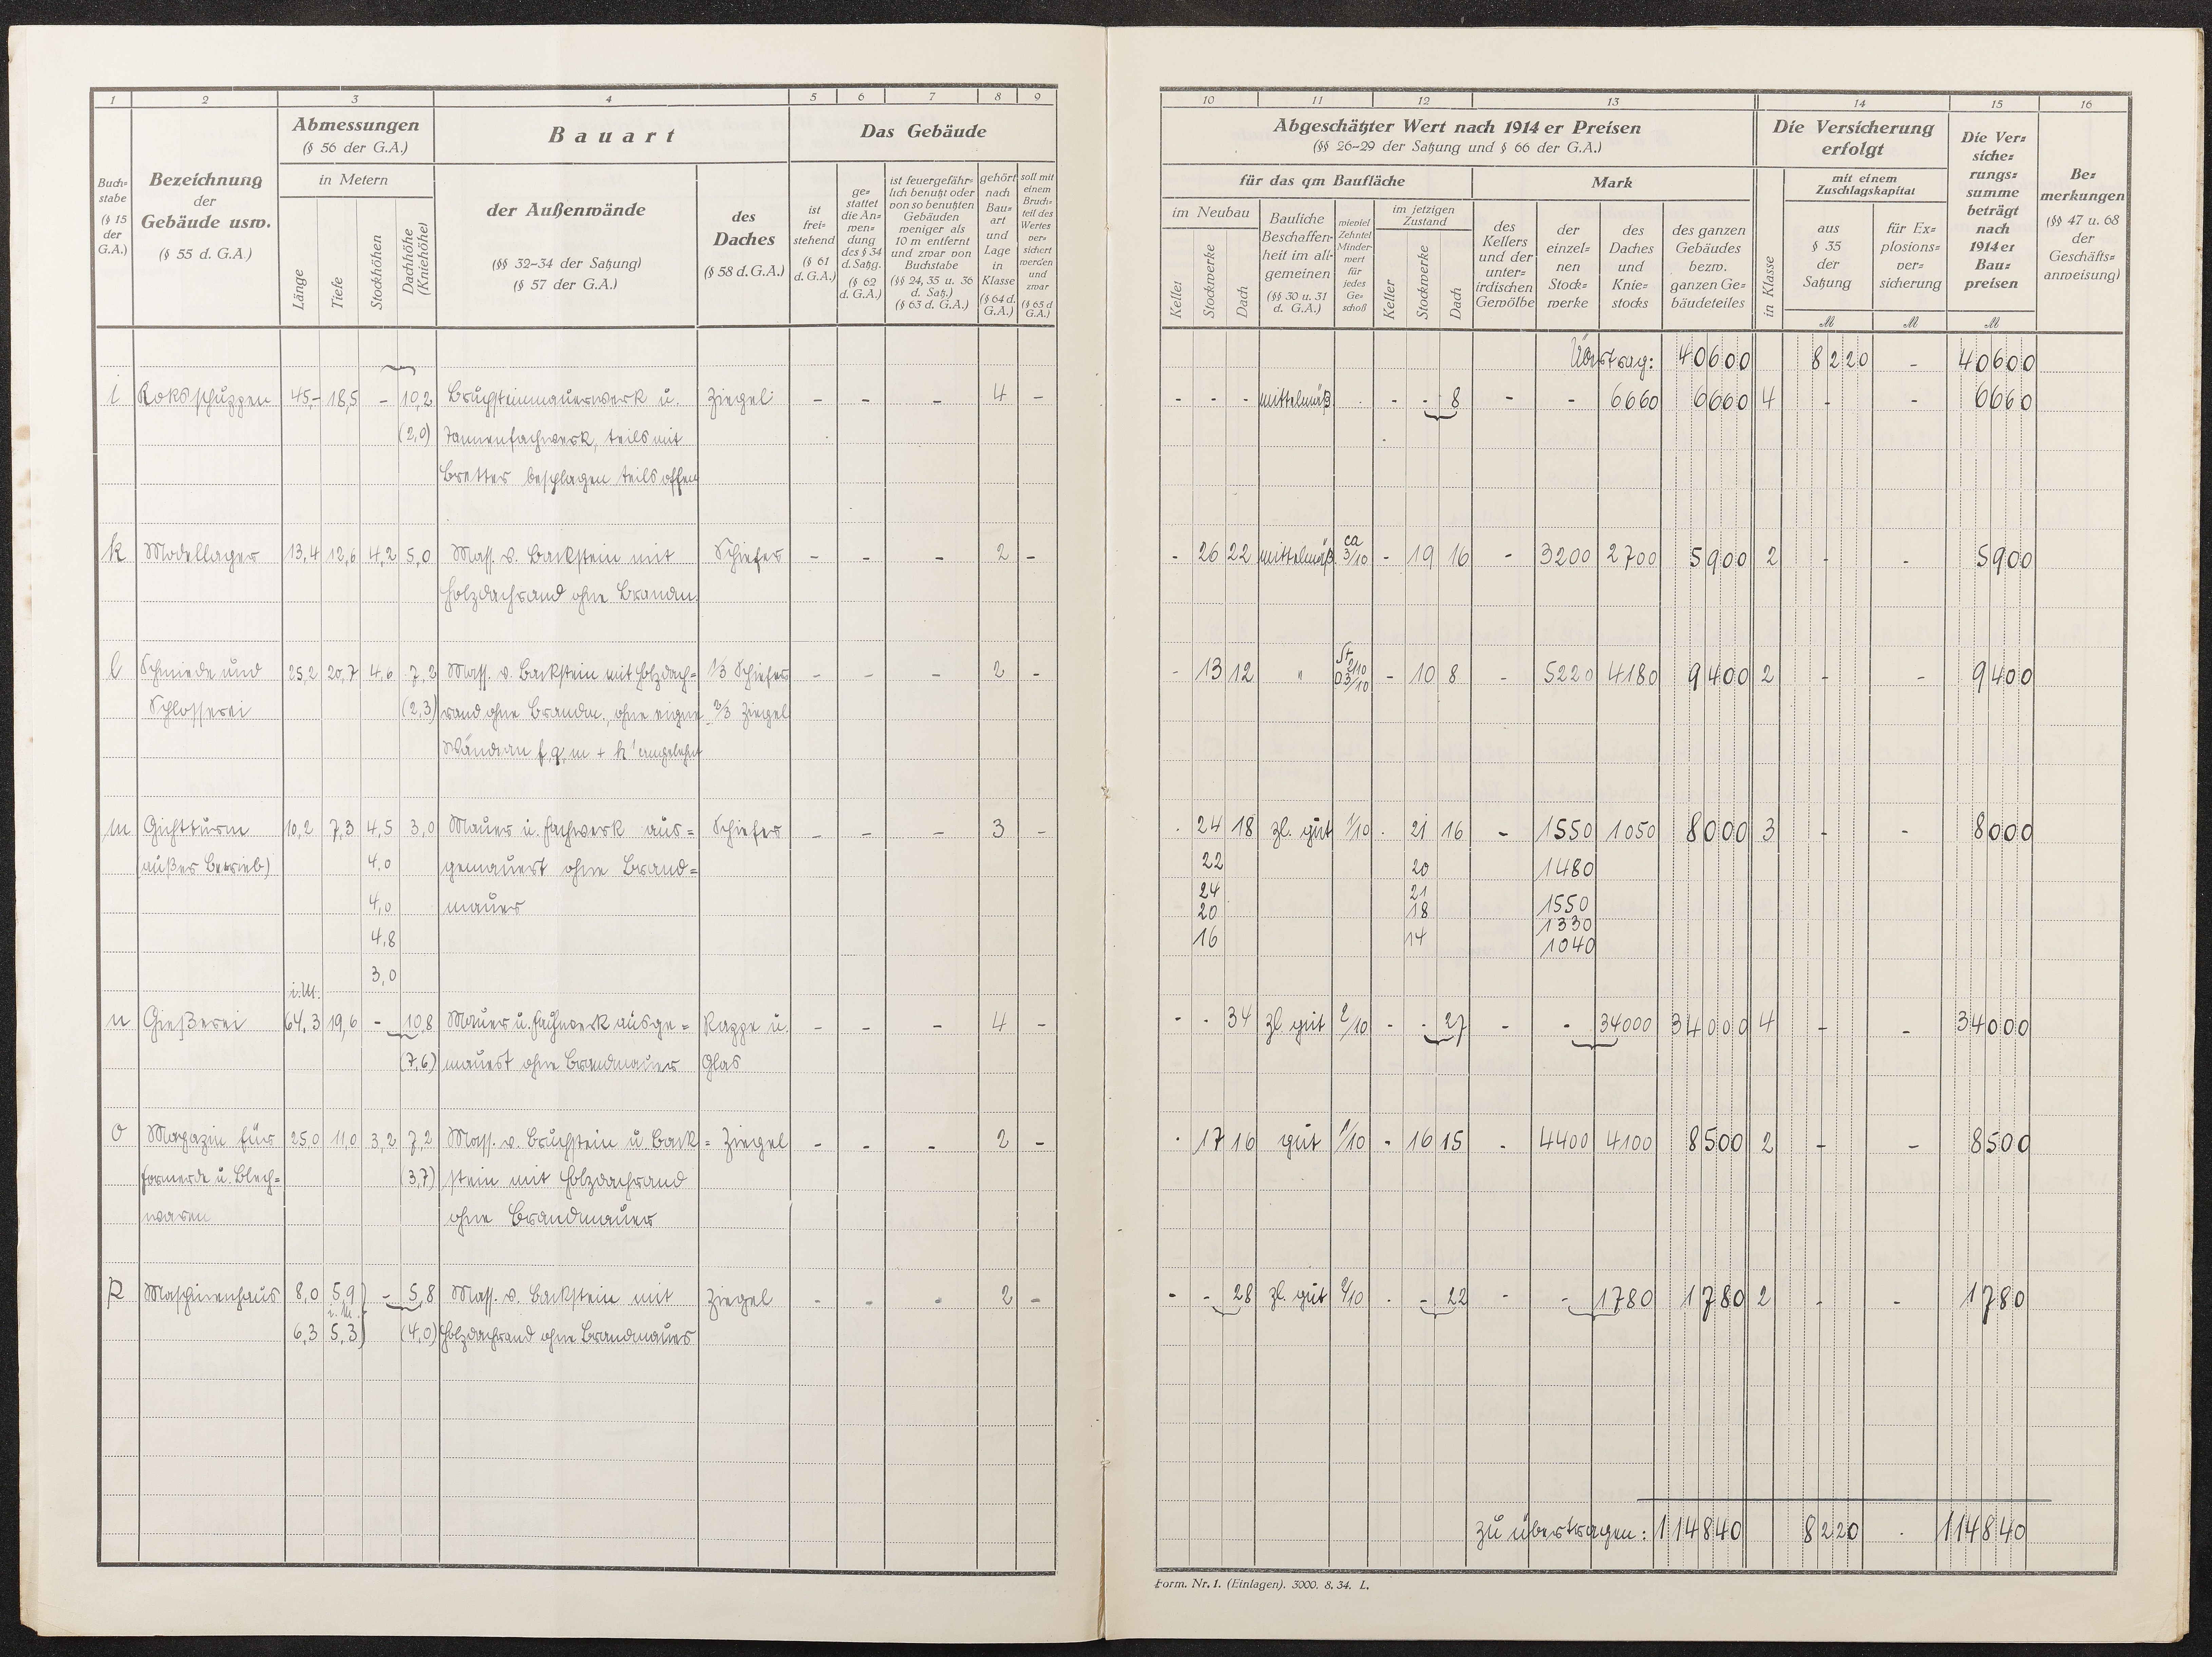 1 2 3 4 5 6 7 8 9
Buch=
stabe
(§ 15
der
G.A.)
Bezeichnung
der
Gebäude usw.
(§ 55 d. G.A)
Abmessungen
(§ 56 der G.A.)
in Metern
Länge
Tiefe
Stockhöhen
Dachhöhe
(Kniehöhe)
Bauart
der Außenwände
(§§ 32-34 der Satzung)
(§ 57 der G.A.)
des
Daches
(§ 58 d. G.A.)
Das Gebäude
ist
frei=
stehend
(§ 61
d. G.A.)
ge=
stattet
die An=
wen=
dung
des § 34
d. Satzg.
(§ 62
d. G.A.)
ist feuergefähr=
lich benutzt oder
von so benutzten
Gebäuden
weniger als
10 m entfernt
und zwar von
Buchstabe
(§§ 24, 35 u. 36
d. Satz.)
(§ 63 d. G.A.)
gehört
nach
Bau=
art
und
Lage
in
Klasse
(§ 64 d.
G.A.)
soll mit
einem
Bruch=
teil des
Wertes
ver=
sichert
werden
und
zwar
(§ 65 d
G.A.)
10 11 12 13 14 15 16
Abgeschätzter Wert nach 1914 er Preisen
(§§ 26-29 der Satzung und § 66 der G.A.)
für das qm Baufläche
im Neubau
Keller
Stockwerke
Dach
Bauliche
Beschaffen=
heit im all=
gemeinen
(§§ 30 u. 31
d. G.A.)
wieviel
Zehntel
Minder=
wert
für
jedes
Ge=
schoß
im jetzigen
Zustand
Keller
Stockwerke
Dach
Mark
des
Kellers
und der
unter=
irdischen
Gewölbe
der
einzel=
nen
Stock=
werke
des
Daches
und
Knie=
stocks
des ganzen
Gebäudes
bezw.
ganzen Ge=
bäudeteiles
Die Versicherung
erfolgt
in Klasse
mit einem
Zuschlagskapital
aus
§ 35
der
Satzung
für Ex=
plosions=
ver=
sicherung
M M M
Die Ver=
siche=
rungs=
summe
beträgt
nach
1914 er
Bau=
preisen
Be=
merkungen
(§§ 47 u. 68
der
Geschäfts=
anweisung)
Übertrag: 40600 8220 - 40600
i Koksschuppen 45,- 18,5 - 10,2 Bruchsteinmauerwerk u. Ziegel - - - 4 - - - - mittelmäß. - - 8 - - 6660 6660 4 - - 6660
(2,0) Tannenfachwerk, teils mit
Bretter beschlagen teils offen
k Modellager 13,4 12,6 4,2 5,0 Mass. v. Backstein mit Schiefer - - - 2 - - 26 22 mittelmäß. ca 3/10 - 19 16 - 3200 2700 5900 2 - - 5900
Holzdachrand ohne Brandm.
l Schmiede und 25,2 20,7 4,6 7,2 Mass. v. Backstein mit Holzdach= 1/3 Schiefer - - - 2 - - 13 12 " St. 2/10 - 10 8 - 5220 4180 9400 2 - - 9400
D 3/10
Schlosserei (2,3) rand ohne Brandm., ohne eigne 2/3 Ziegel
Wände an f, g, m + k' angelehnt
m Gichtturm 10,2 7,3 4,5 3,0 Mauer u. Fachwerk aus= Schiefer - - - 3 - - 24 18 zl. gut 1/10 - 21 16 - 1550 1050 8000 3 - - 8000
(außer Betrieb) 4,0 gemauert ohne Brand= 22 20 1480
4,0 mauer 24 21 1550
20 18 1330
4,8 16 14 1040
3,0
i.M.
n Gießerei 64,3 19,6 - 10,8 Mauer u. Fachwerk ausge= Pappe u. - - - 4 - - - 34 zl gut 2/10 - - 27 - - 34000 34000 4 - - 34000
(7,6) mauert ohne Brandmauer Glas
o Magazin für 25,0 11,0 3,2 7,2 Mass. v. Bruchstein u. Back= Ziegel - - - 2 - - 17 16 gut 1/10 - 16 15 - 4400 4100 8500 2 - - 8500
Formerde u. Blech= (3,7) stein mit Holzdachrand
waren ohne Brandmauer
p Maschinenhaus 8,0 5,9 - 5,8 Mass. v. Backstein mit Ziegel - - - 2 - - - 28 zl. gut 2/10 - - 22 - - 1780 1780 2 - - 1780
i.M.
6,3 5,3 (4,0) Holzdachrand ohne Brandmauer
zu übertragen: 114840 8220 - 114840
Form. Nr. 1. (Einlagen). 3000. 8. 34. L.